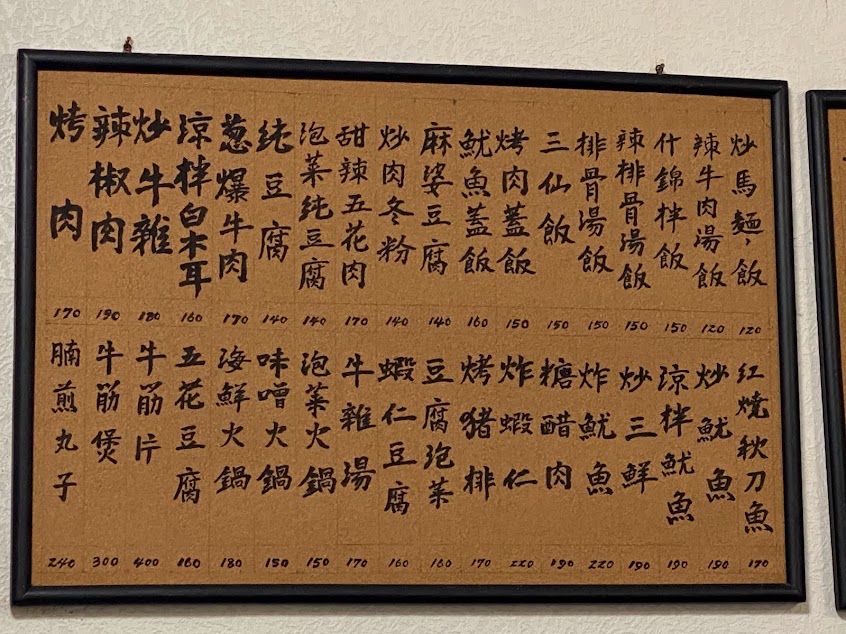 炒馬麵，飯 120
辣牛肉湯飯 120
什錦拌飯 150
辣排骨湯飯 150
排骨湯飯 150
三仙飯 150
烤肉蓋飯 150
魷魚蓋飯 160
麻婆豆腐 140
炒肉冬粉 140
甜辣五花肉 170
泡菜純豆腐 140
純豆腐 140
葱爆牛肉 170
涼拌白木耳 160
炒牛雜 180
辣椒肉 190
烤肉 170
紅燒秋刀魚 170
炒魷魚 190
涼拌魷魚 190
炒三鮮 190
炸魷魚 220
糖醋肉 190
炸蝦仁 220
烤豬排 170
豆腐泡菜 160
蝦仁豆腐 160
牛雜湯 170
泡菜火鍋 150
味噌火鍋 150
海鮮火鍋 180
五花豆腐 160
牛筋片 400
牛筋煲 300
腩煎丸子 240